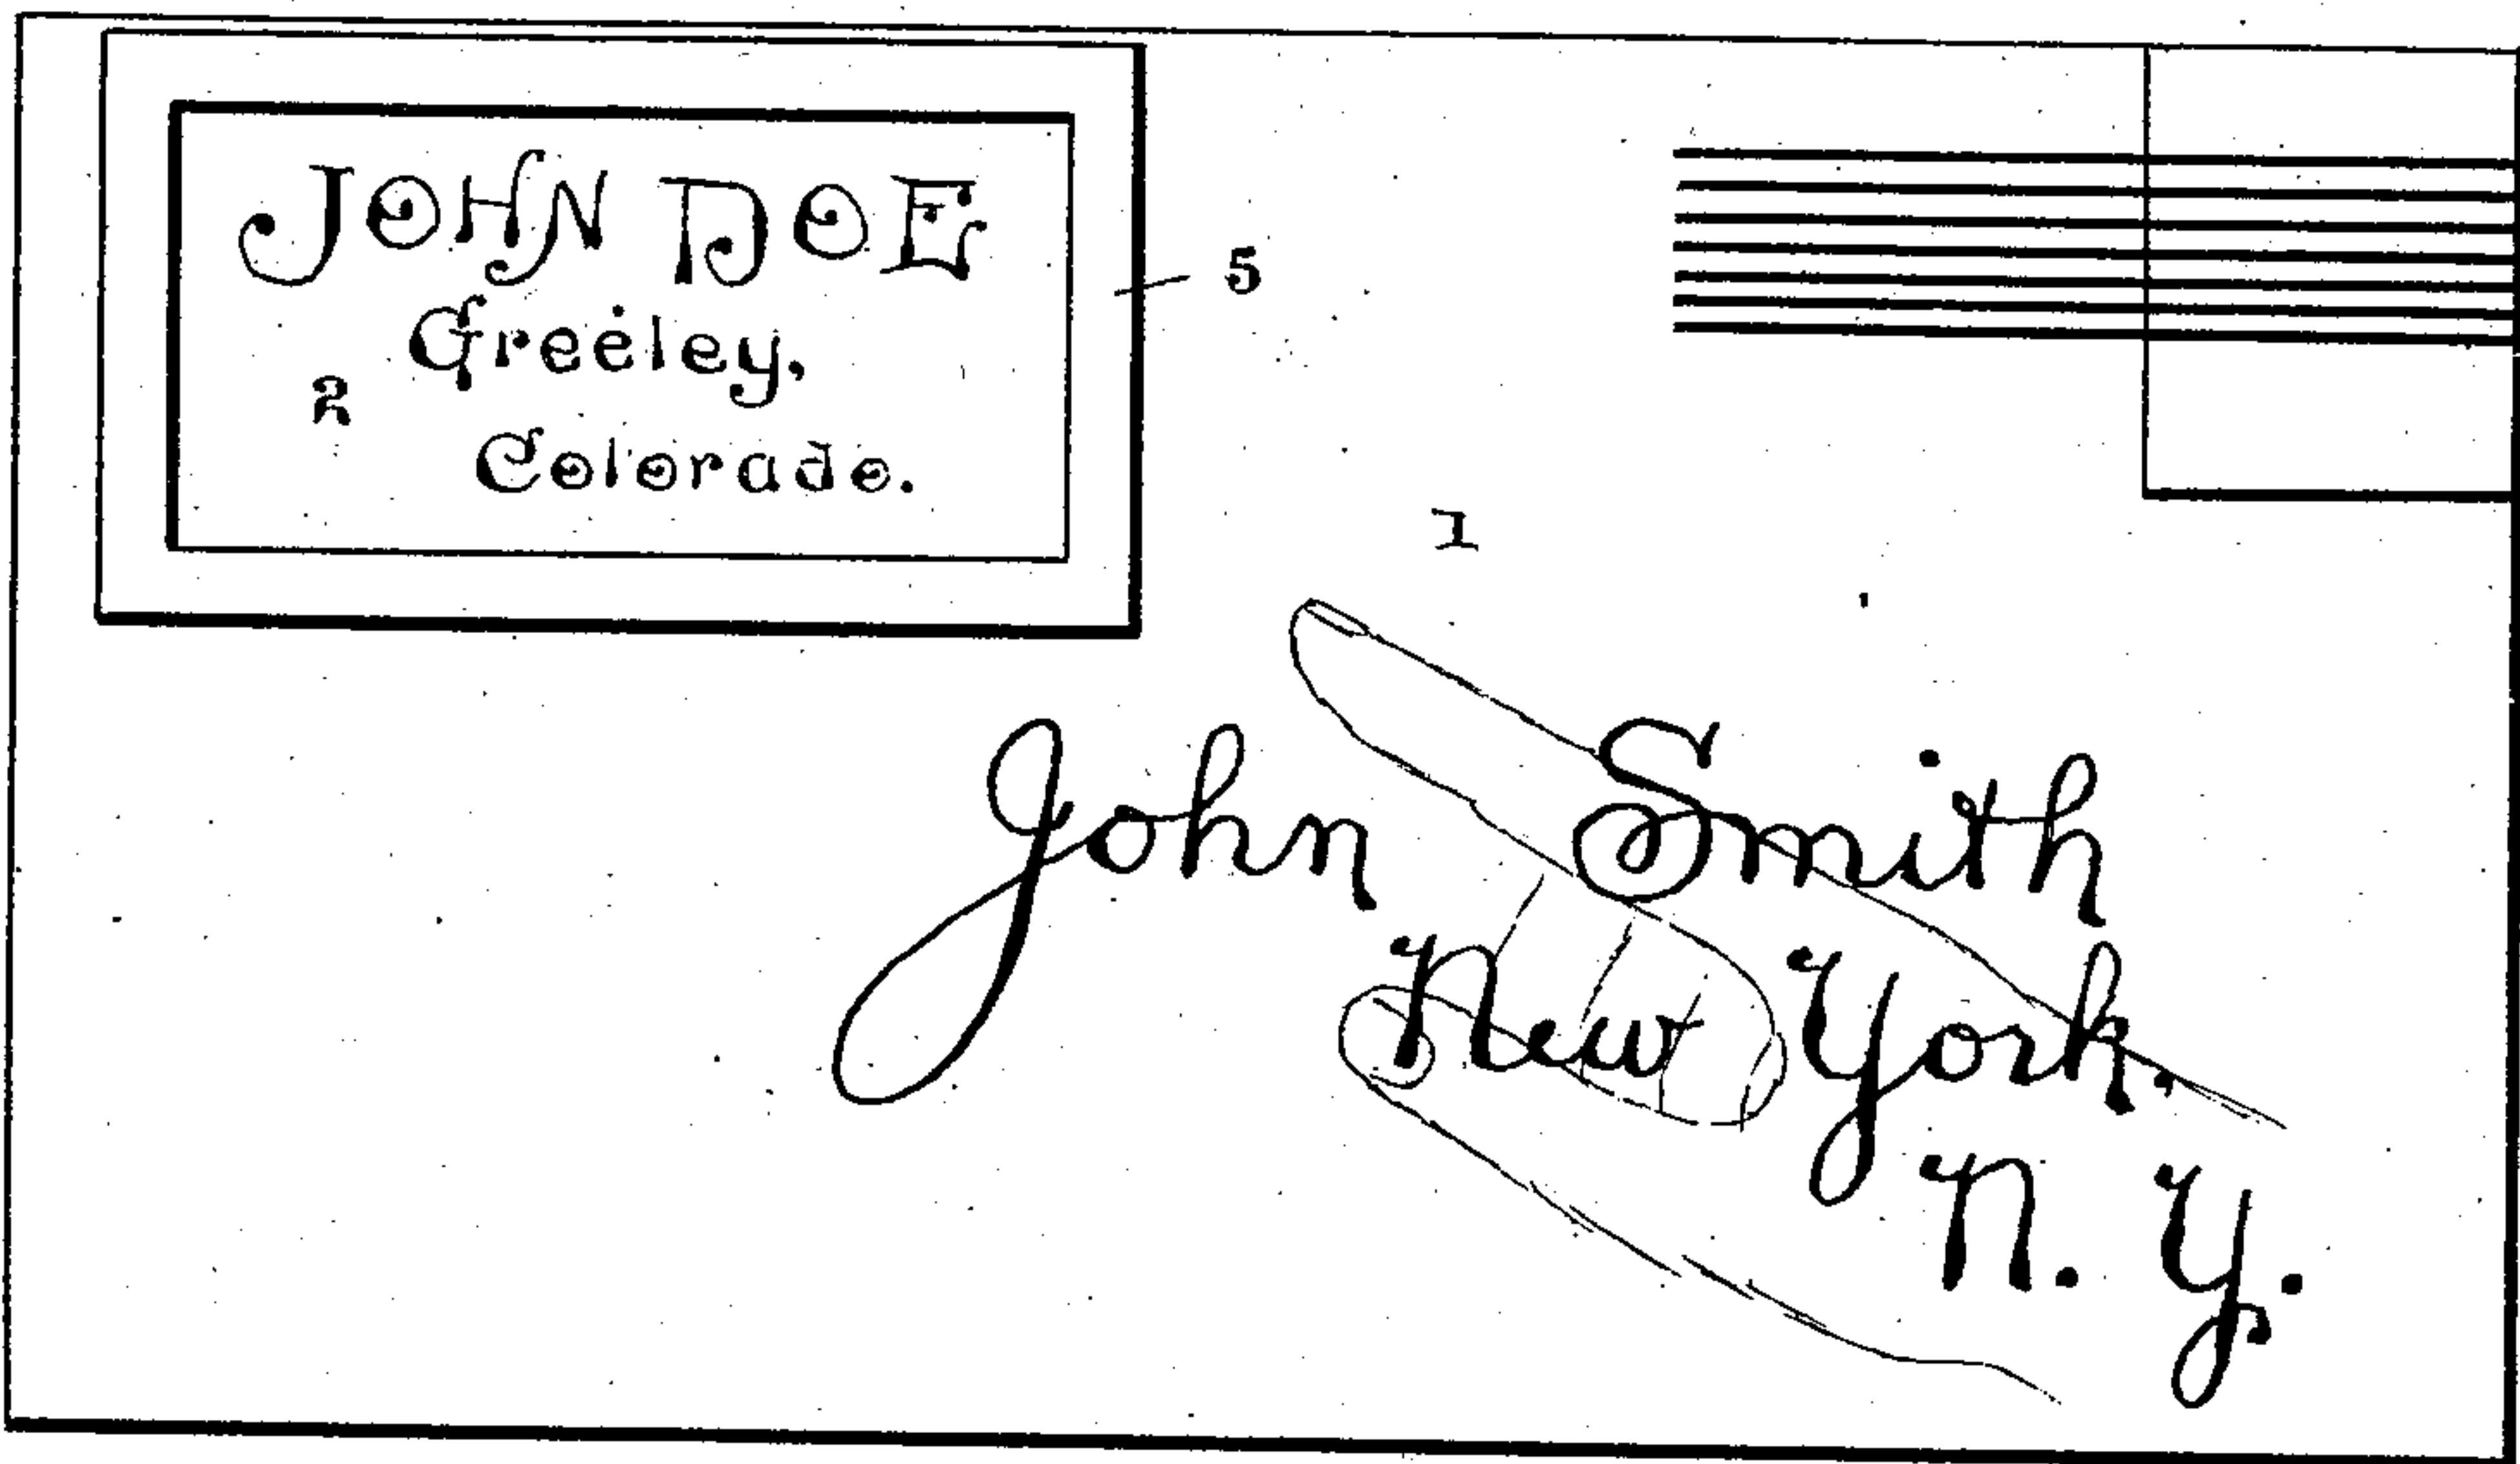 JOHN DOE
Greeley,
2
Colorado.
5
1
John Smith
New York,
N. Y.